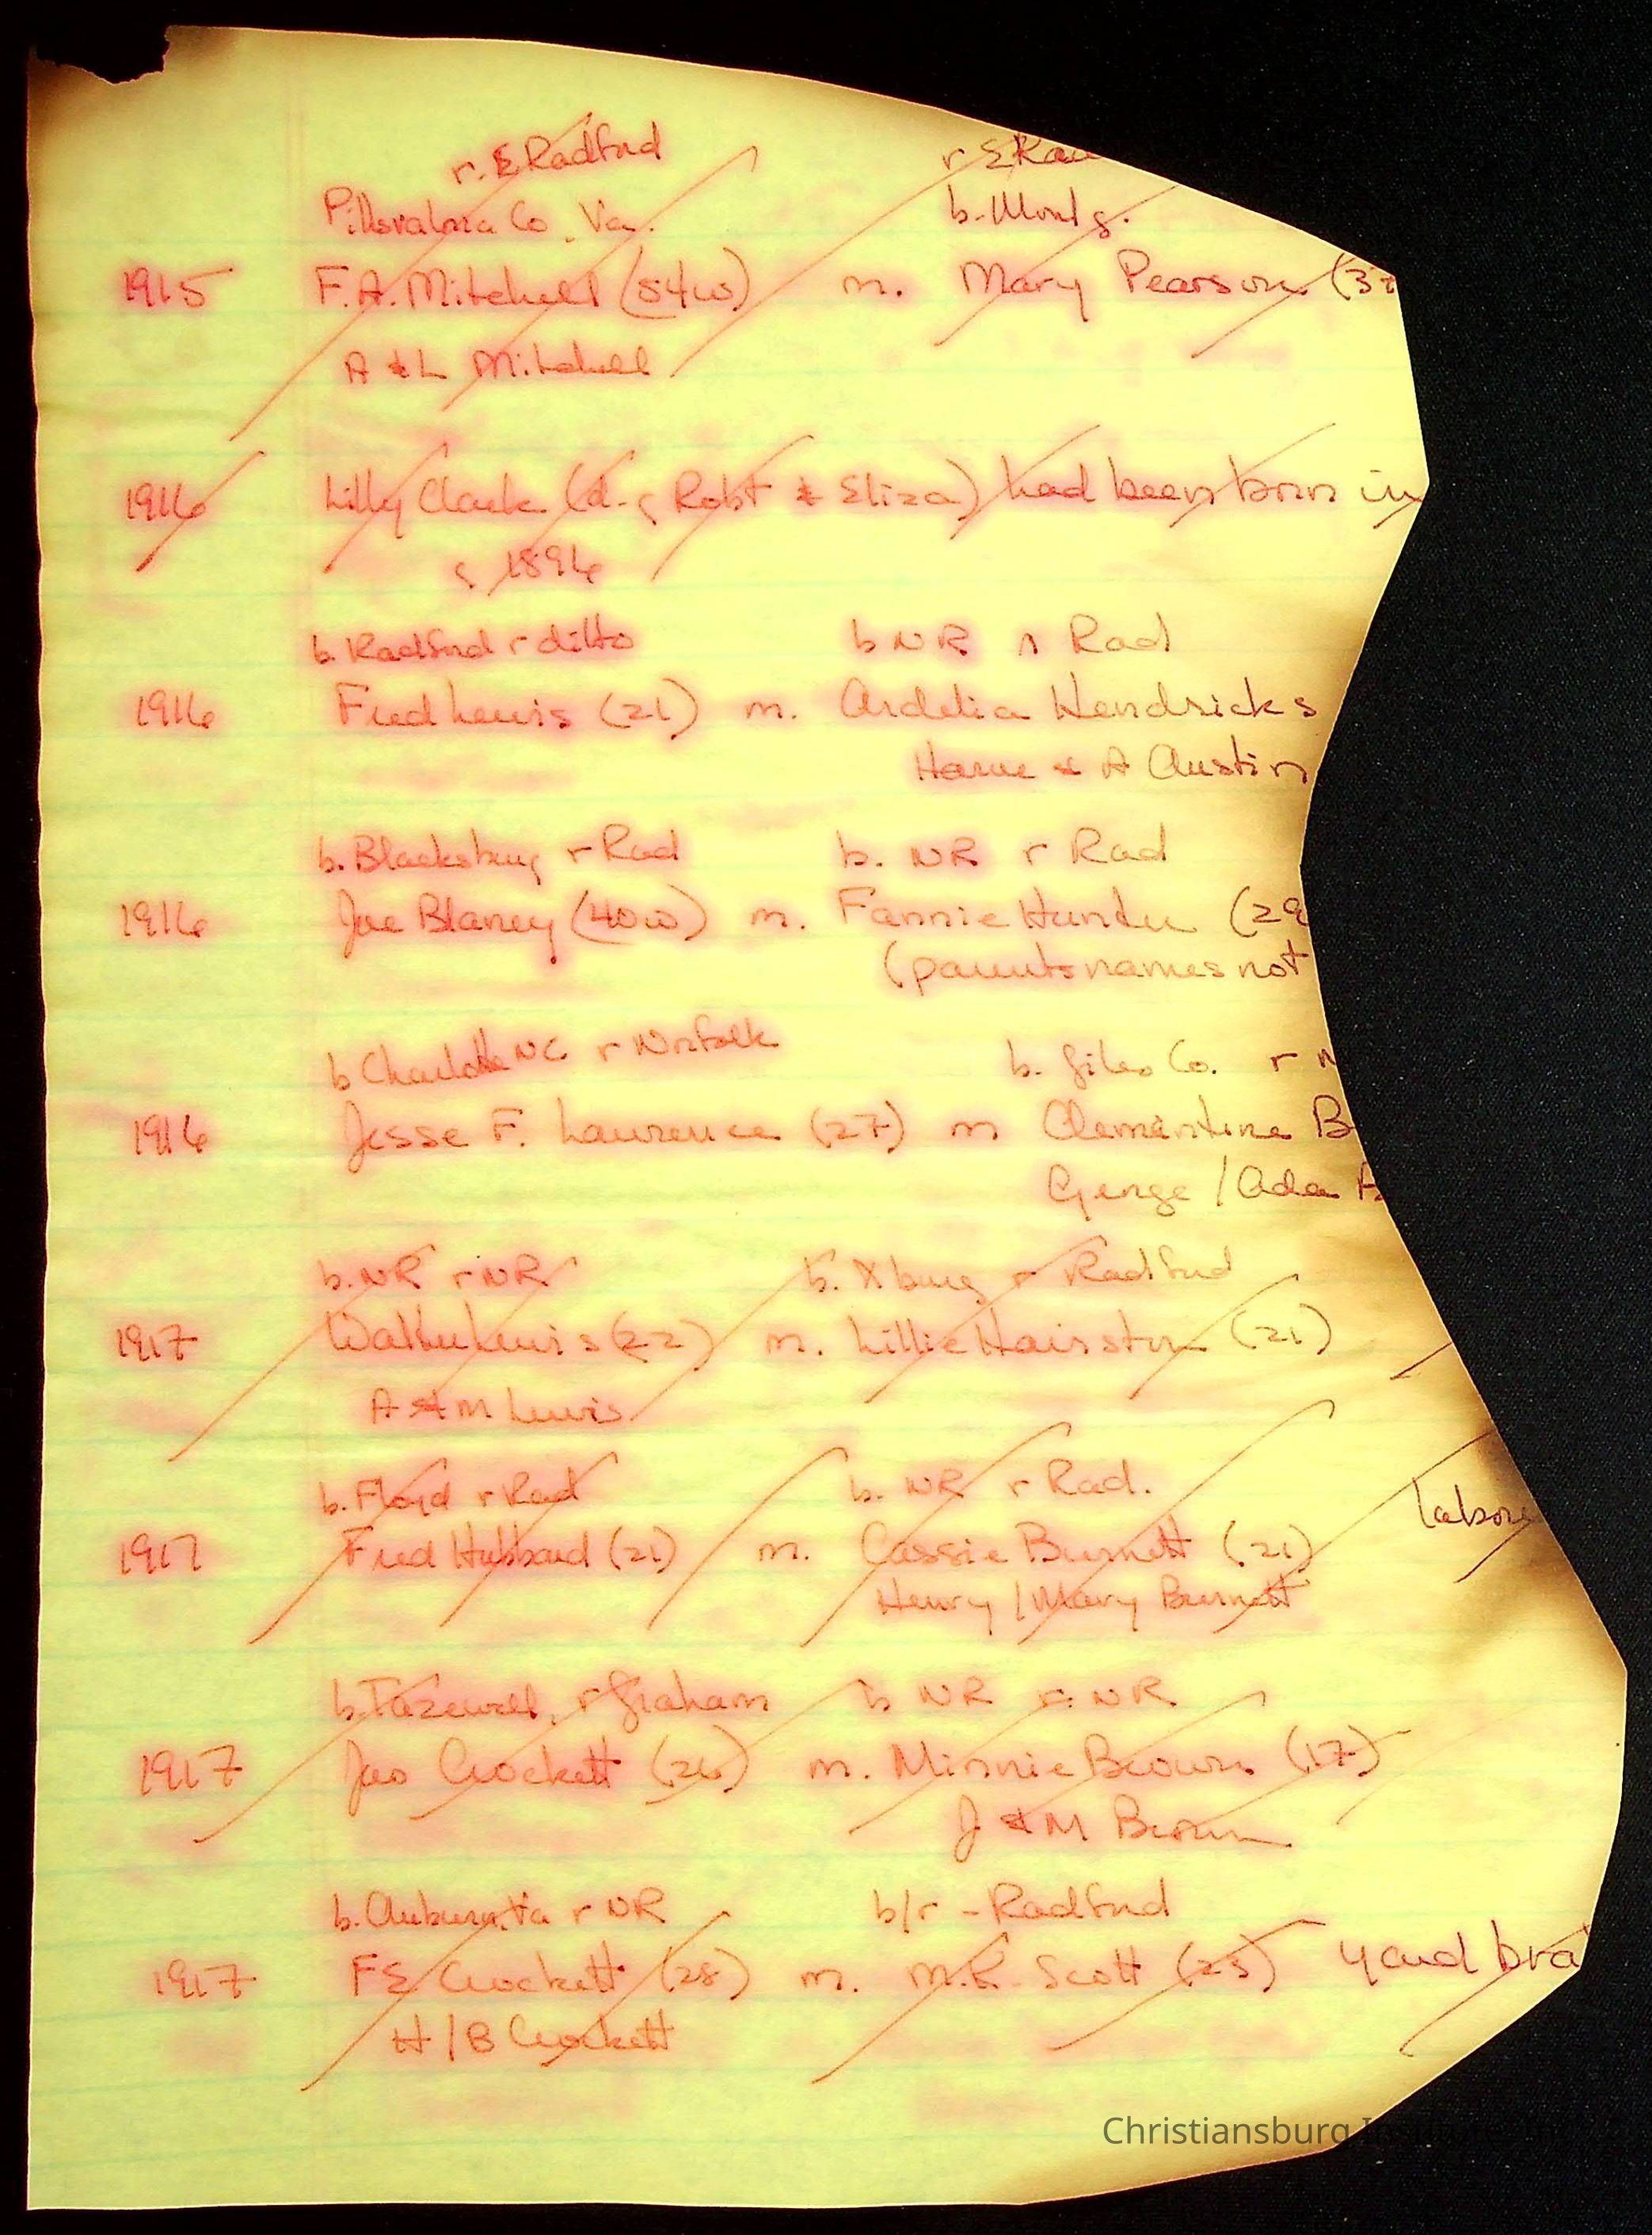 r. E Radford r E Rad
Pittsylvania Co. Va. b. Montg.
1915 F.A. Mitchell (54w) m. Mary Pearson (3
A & L Mitchell
1916 Lilly Clark (d. of Robt & Eliza) had been born in
c 1896
b. Radford r ditto b NR r Rad
1916 Fred Lewis (21) m. Ardelia Hendricks
& A Austin
b. Blacksburg r Rad b. NR r Rad
1916 Joe Blaney (40w) m. Fannie Hunter (29
(parents names not
b Charlotte NC r Norfolk b. Giles Co. r N
1916 Jesse F. Lawrence (27) m Clementine B
George / Ada
b. NR r NR b. Xburg r Radford
1917 Walter Lewis (22) m. Lillie Hairston (21)
A & M Lewis
b. Floyd r Rad b. NR r Rad. labore
1917 Fred Hubbard (21) m. Cassie Burnett (21)
Henry / Mary Burnett
b. Tazewell, r Graham b NR r. NR
1917 Jas Crockett (26) m. Minnie Brown (17)
J & M Brown
b. Auburn, Va r NR b/r - Radford
1917 FE Crockett (28) m. M.R. Scott (25) yard bra
H / B Crockett
Christiansburg Institute